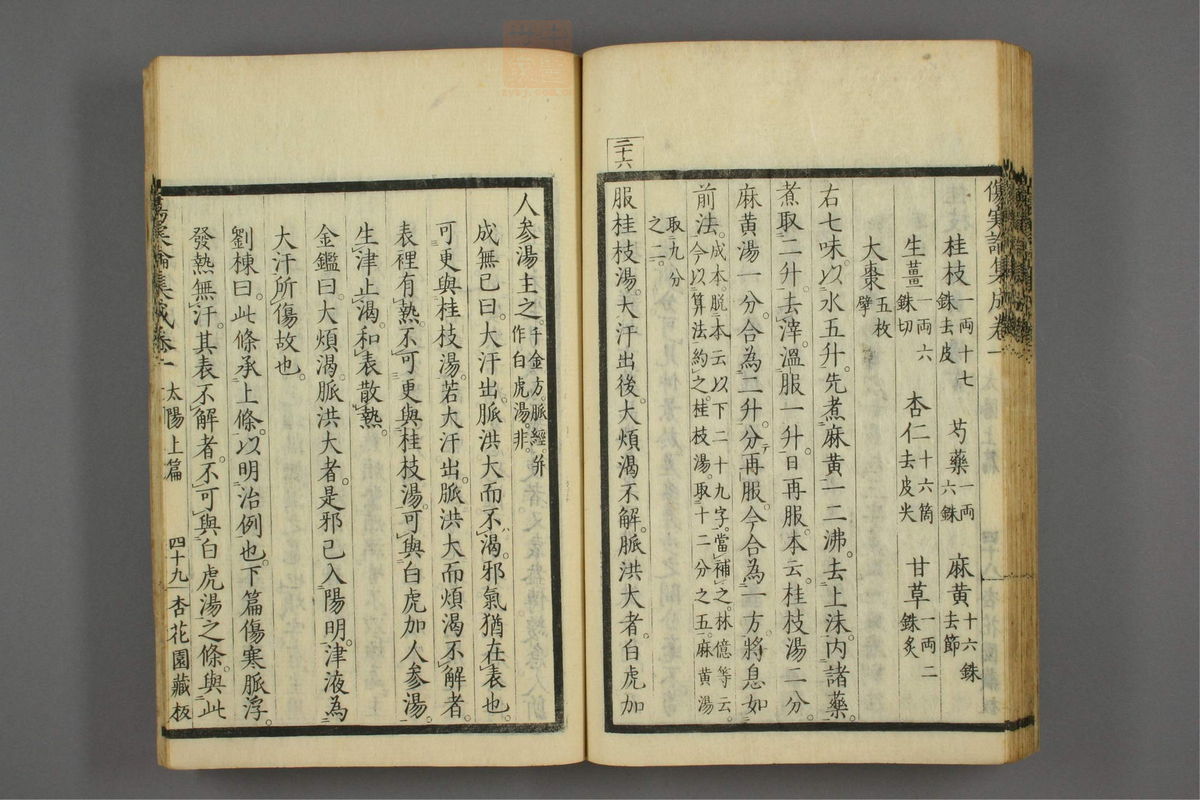 傷寒論集成卷一
桂枝一両十七銖去皮　芍藥一両六銖　麻黄十六銖去節
生薑一両六銖切　杏仁二十六箇去皮尖　甘草一両二銖炙
大棗五枚擘
右七味。以水五升。先煮麻黄一二沸。去上沫。内諸藥。
煮取二升。去滓。溫服一升。日再服。本云。桂枝湯二分。
麻黄湯一分。合為二升。分再服。今合為一方。將息如
前法。成本。脱本云以下二十九字。當補之。林億等云。今以算法約之。桂枝湯。取十二分之五。麻黄湯取九分之二。
三十六
服桂枝湯。大汗出後。大煩渴不解。脈洪大者。白虎加
人参湯主之。千金方。脈經。並作白虎湯。非。
成無己曰。大汗出。脈洪大而不渴。邪氣猶在表也。
可更與桂枝湯。若大汗出。脈洪大而煩渴不解者。
表裡有熱。不可更與桂枝湯。可與白虎加人参湯。
生津止渴。和表散熱。
金鑑曰。大煩渴脈洪大者。是邪已入陽明。津液為
大汗所傷故也。
劉棟曰。此條承上條。以明治例也。下篇傷寒脈浮。
發熱無汗。其表不解者。不可與白虎湯之條。與此
傷寒論集成卷一　太陽上篇　四十九　杏花園藏板